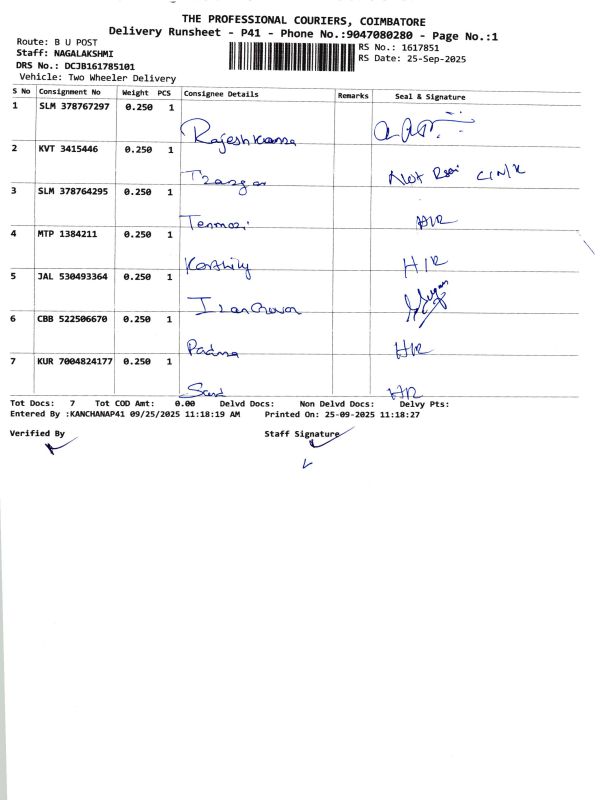 THE PROFESSIONAL COURIERS, COIMBATORE
Delivery Runsheet - P41 - Phone No.:9047080280 - Page No.:1
Route: B U POST
Staff: NAGALAKSHMI
DRS No.: DCJB161785101
Vehicle: Two Wheeler Delivery
RS No.: 1617851
RS Date: 25-Sep-2025
S No Consignment No Weight PCS Consignee Details Remarks Seal & Signature
1 SLM 378767297 0.250 1
Rajeshkanna
2 KVT 3415446 0.250 1
3 SLM 378764295 0.250 1
Tenmozi H/R
4 MTP 1384211 0.250 1
H/R
5 JAL 530493364 0.250 1
6 CBB 522506670 0.250 1
Padma H/R
7 KUR 7004824177 0.250 1
H/R
Tot Docs: 7 Tot COD Amt: 0.00 Delvd Docs: Non Delvd Docs: Delvy Pts:
Entered By :KANCHANAP41 09/25/2025 11:18:19 AM Printed On: 25-09-2025 11:18:27
Verified By Staff Signature